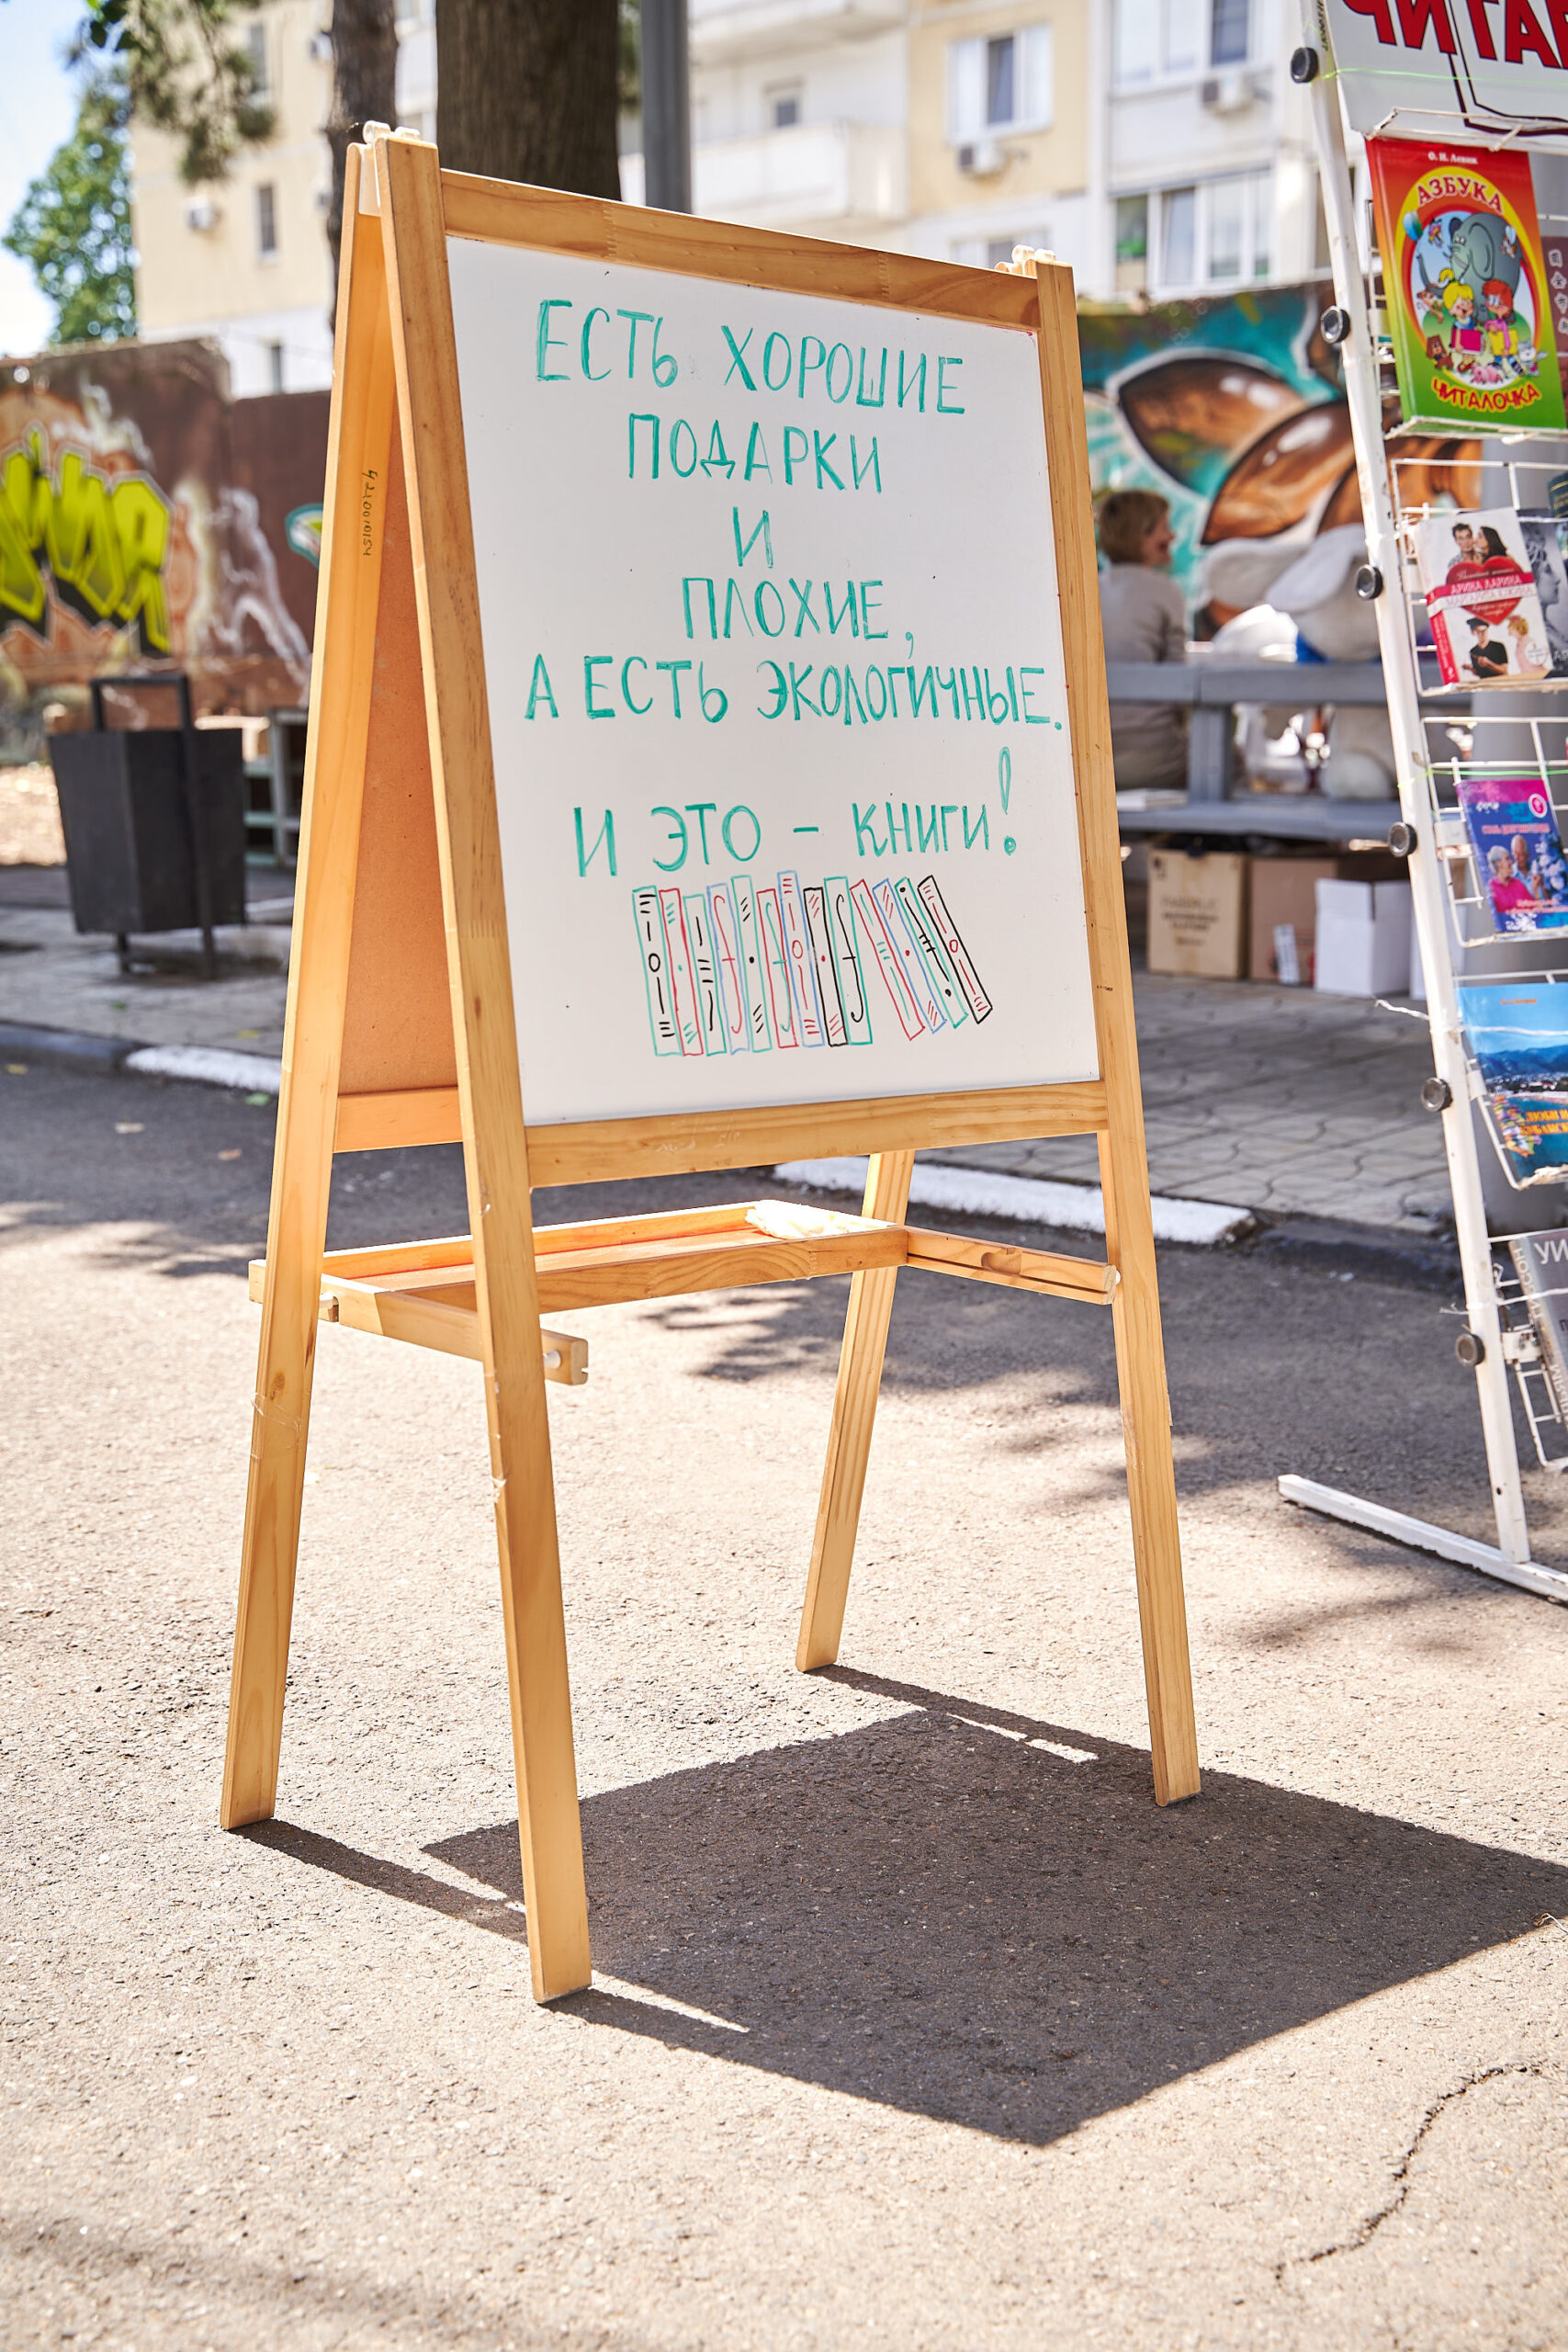 ЕСТЬ ХОРОШИЕ
ПОДАРКИ
И
ПЛОХИЕ,
А ЕСТЬ ЭКОЛОГИЧНЫЕ.
И ЭТО – КНИГИ!
О. Н. Левик
АЗБУКА
ЧИТАЛОЧКА
АРИНА ЛАРИНА